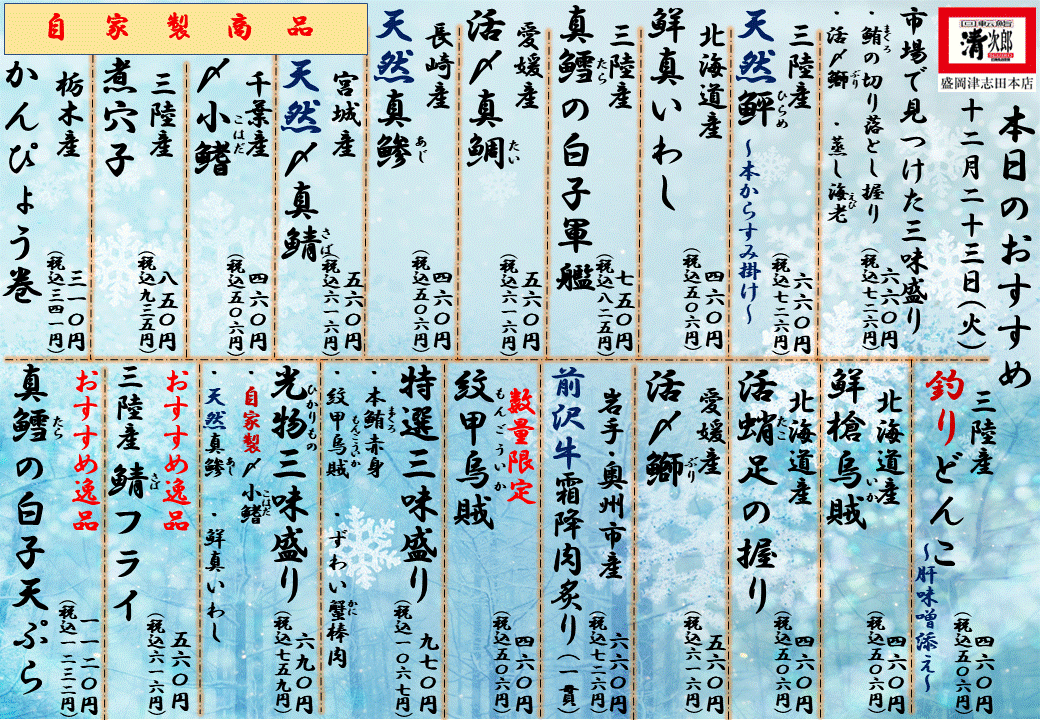 回転鮨
清次郎
盛岡津志田本店
本日のおすすめ
十二月二十三日（火）
市場で見つけた三味盛り
・鮪の切り落とし握り
まぐろ
・活〆鰤 ・蒸し海老
ぶり
えび
六六〇円
（税込七二六円）
三陸産
天然鮃
ひらめ
～本からすみ掛け～
六六〇円
（税込七二六円）
北海道産
鮮真いわし
四六〇円
（税込五〇六円）
三陸産
真鱈の白子軍艦
たら
七五〇円
（税込八二五円）
愛媛産
活〆真鯛
たい
五六〇円
（税込六一六円）
長崎産
天然真鯵
あじ
四六〇円
（税込五〇六円）
自家製商品
宮城産
天然〆真鯖
さば
五六〇円
（税込六一六円）
千葉産
〆小鰭
こはだ
四六〇円
（税込五〇六円）
三陸産
煮穴子
八五〇円
（税込九三五円）
栃木産
かんぴょう巻
三一〇円
（税込三四一円）
三陸産
釣りどんこ
～肝味噌添え～
四六〇円
（税込五〇六円）
北海道産
鮮槍烏賊
いか
四六〇円
（税込五〇六円）
北海道産
活蛸足の握り
たこ
四六〇円
（税込五〇六円）
愛媛産
活〆鰤
ぶり
五六〇円
（税込六一六円）
岩手・奥州市産
前沢牛霜降肉炙り（一貫）
六六〇円
（税込七二六円）
数量限定
紋甲烏賊
もんごういか
四六〇円
（税込五〇六円）
特選三味盛り
・本鮪赤身
まぐろ
・紋甲烏賊 ・ずわい蟹棒肉
もんごういか
かに
九七〇円
（税込一〇六七円）
光物三味盛り
ひかりもの
・自家製〆小鰭
こはだ
・天然真鯵 ・鮮真いわし
あじ
六九〇円
（税込七五九円）
おすすめ逸品
三陸産 鯖フライ
さば
五六〇円
（税込六一六円）
おすすめ逸品
真鱈の白子天ぷら
たら
一一二〇円
（税込一二三二円）